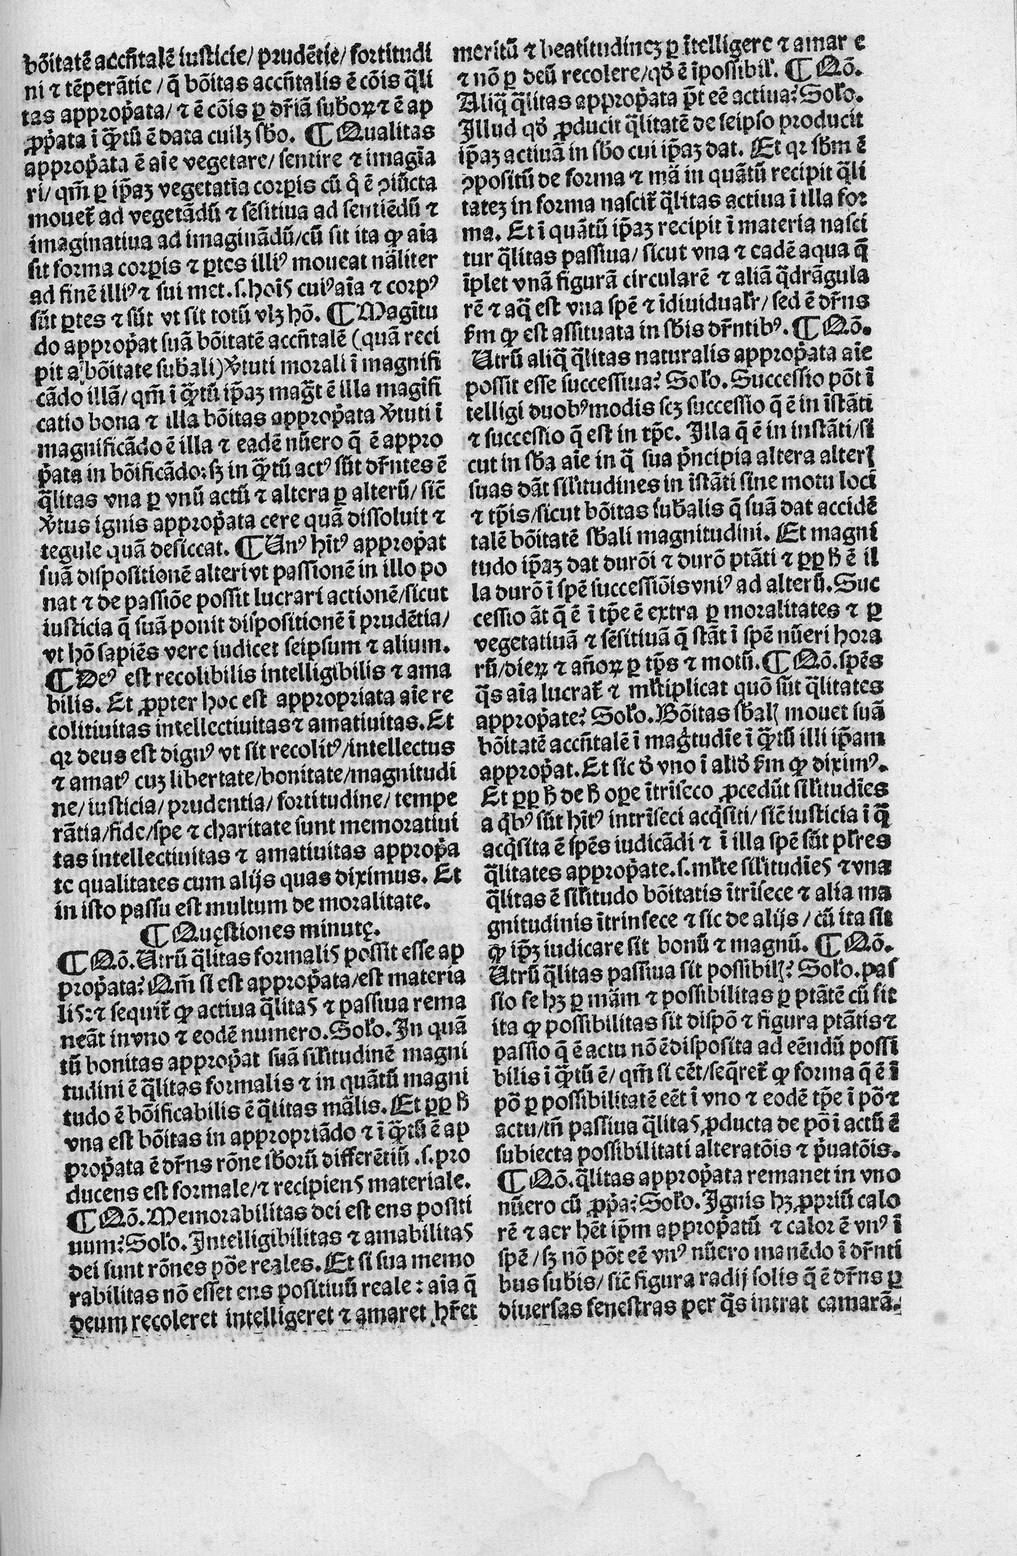 bõitatẽ accñtalẽ iusticie/ prudẽtie/ fortitudi
ni ⁊ tẽperãtie/ q̃ bõitas accñtalis ẽ cõis q̃li
tas approp̃ata/ ⁊ ẽ cõis ꝑ dr̃iã subõꝝ ⁊ ẽ ap
ꝓp̃ata ĩ q̃tũ ẽ data cuilꝫ sb̃o. ¶ Qualitas
approp̃ata ẽ aĩe vegetare/ sentire ⁊ imagĩa
ri/ qm̃ ꝑ ip̃aꝫ vegetatia corp̃is cũ q̃ ẽ ꝯiũcta
mouet̃ ad vegetãdũ ⁊ sẽsitiua ad sentiẽdũ ⁊
imaginatiua ad imaginãdũ/ cũ sit ita ꝙ aĩa
sit forma corp̃is ⁊ ꝑtes illiꝰ moueat nãliter
ad finẽ illiꝰ ⁊ sui met .s. hoĩs cuiꝰ aĩa ⁊ corpꝰ
sũt ꝑtes ⁊ sũt vt sit totũ vlꝫ hõ. ¶ Magĩtu
do approp̃at suã bõitatẽ accñtalẽ (quã reci
pit a bõitate sub̃ali) v̾tuti morali ĩ magnifi
cãdo illã/ qm̃ ĩ q̃tũ ip̃aꝫ mag̃t ẽ illa magĩfi
catio bona ⁊ illa bõitas approp̃ata v̾tuti ĩ
magnificãdo ẽ illa ⁊ eadẽ nũero q̃ ẽ appro
p̃ata in bõificãdo: sꝫ in q̃tũ actꝰ sũt dr̃ntes ẽ
q̃litas vna ꝑ vnũ actũ ⁊ altera ꝑ alterũ/ sic̃
v̾tus ignis approp̃ata cere quã dissoluit ⁊
tegule quã desiccat. ¶ Unꝰ hĩtꝰ approp̃at
suã dispositionẽ alteri vt passionẽ in illo po
nat ⁊ de passiõe possit lucrari actionẽ/ sicut
iusticia q̃ suã ponit dispositionẽ ĩ prudẽtia/
vt hõ sapiẽs vere iudicet seipsum ⁊ alium.
¶ Deꝰ est recolibilis intelligibilis ⁊ ama
bilis. Et ꝓpter hoc est appropriata aĩe re
colitiuitas intellectiuitas ⁊ amatiuitas. Et
qꝛ deus est dignꝰ vt sit recolitꝰ/ intellectus
⁊ amatꝰ cuꝫ libertate/ bonitate/ magnitudi
ne/ iusticia/ prudentia/ fortitudine/ tempe
rãtia/ fide/ spe ⁊ charitate sunt memoratiui
tas intellectiuitas ⁊ amatiuitas approp̃a
te qualitates cum alijs quas diximus. Et
in isto passu est multum de moralitate.
¶ Quęstiones minutę.
¶ Qõ. Utrũ q̃litas formalis possit esse ap
prop̃ata? Nam̃ si est approp̃ata/ est materia
lis: ⁊ sequit̃ ꝙ actiua q̃litas ⁊ passiua rema
neãt in vno ⁊ eodẽ numero. Solo. In quã
tũ bonitas approp̃at suã silitudinẽ magni
tudini ẽ q̃litas formalis ⁊ in quãtũ magni
tudo ẽ bõificabilis ẽ q̃litas mãlis. Et ꝑꝑ h̃
vna est bõitas in appropriãdo ⁊ ĩ q̃tũ ẽ ap
prop̃ata ẽ dr̃ns rõne sb̃orũ differẽtiũ .s. pro
ducens est formale/ ⁊ recipiens materiale.
¶ Qõ. Memorabilitas dei est ens positi
uum? Solo. Intelligibilitas ⁊ amabilitas
dei sunt rõnes põe reales. Et si sua memo
rabilitas nõ esset ens positiuũ reale: aĩa q̃
deum recoleret intelligeret ⁊ amaret hr̃et
meritũ ⁊ beatitudineꝫ ꝑ ĩtelligere ⁊ amare
⁊ nõ ꝑ deũ recolere/ qd̃ ẽ ĩpossibil. ¶ Qõ.
Aliq̃ q̃litas approp̃ata p̃t eẽ actiua? Solo.
Illud qd̃ ꝓducit q̃litatẽ de seipso producit
ip̃aꝫ actiuã in sb̃o cui ip̃aꝫ dat. Et qꝛ sb̃m ẽ
ꝯpositũ de forma ⁊ mã in quãtũ recipit q̃li
tateꝫ in forma nascit̃ q̃litas actiua ĩ illa for
ma. Et ĩ quãtũ ip̃aꝫ recipit ĩ materia nasci
tur q̃litas passiua/ sicut vna ⁊ eadẽ aqua q̃
ĩplet vnã figurã circularẽ ⁊ aliã q̃drãgula
rẽ ⁊ aq̃ est vna spẽ ⁊ ĩdiuidualr̃/ sed ẽ dr̃ns
km̃ ꝙ est assituata in sb̃is dr̃ntibꝰ. ¶ Qõ.
Utrũ aliq̃ q̃litas naturalis approp̃ata aĩe
possit esse successiua? Solo. Successio põt ĩ
telligi duobꝰ modis scꝫ successio q̃ ẽ in ĩstãti
⁊ successio q̃ est in tp̃e. Illa q̃ ẽ in instãti/ si
cut in sb̃a aĩe in q̃ sua p̃ncipia altera alteri
suas dãt silitudines in ĩstãti sine motu loci
⁊ tp̃is/ sicut bõitas sub̃alis q̃ suã dat accidẽ
talẽ bõitatẽ sb̃ali magnitudini. Et magni
tudo ip̃aꝫ dat durõi ⁊ durõ ptãti ⁊ ꝑꝑ h̃ ẽ il
la durõ ĩ spẽ successiõis vniꝰ ad alterũ. Suc
cessio ãt q̃ ẽ ĩ tp̃e ẽ extra ꝑ moralitates ⁊ ꝑ
vegetatiuã ⁊ sẽsitiuã q̃ stãt ĩ spẽ nũeri hora
rũ/ dieꝝ ⁊ añoꝝ ꝑ tp̃s ⁊ motũ. ¶ Qõ. spẽs
q̃s aĩa lucrat̃ ⁊ mltiplicat quõ sũt q̃litates
approp̃ate? Solo. Bõitas sb̃alis mouet suã
bõitatẽ accñtalẽ ĩ mag̃tudĩe ĩ q̃tũ illi ip̃am
approp̃at. Et sic d̃ vno ĩ alio km̃ ꝙ diximꝰ.
Et ꝑꝑ h̃ de h̃ oꝑe ĩtrĩseco ꝓcedũt silitudĩes
a q̃bꝰ sũt hĩtꝰ intrĩseci acq̃siti/ sic̃ iusticia ĩ q̃
acq̃sita ẽ spẽs iudicãdi ⁊ ĩ illa spẽ sũt plres
q̃litates approp̃ate .s. mlte silitudĩes ⁊ vna
q̃litas ẽ silitudo bõitatis ĩtrĩsece ⁊ alia ma
gnitudinis ĩtrinsece ⁊ sic de alijs/ cũ ita sit
ꝙ ip̃ꝫ iudicare sit bonũ ⁊ magnũ. ¶ Qõ.
Utrũ q̃litas passiua sit possibilis? Solo. pas
sio se hꝫ ꝑ mãm ⁊ possibilitas ꝑ ptãtẽ cũ sit
ita ꝙ possibilitas sit dispõ ⁊ figura ptãtis ⁊
passio q̃ ẽ actu nõ ẽ disposita ad eẽndũ possi
bilis ĩ q̃tũ ẽ/ qm̃ si eẽt/ seq̃ret̃ ꝙ forma q̃ ẽ ĩ
põ ꝑ possibilitatẽ eẽt ĩ vno ⁊ eodẽ tp̃e ĩ põ ⁊
actu/ tñ passiua q̃litas ꝓducta de põ ĩ actũ ẽ
subiecta possibilitati alteratõis ⁊ p̃uatõis.
¶ Qõ. q̃litas approp̃ata remanet in vno
nũero cũ ꝓp̃a? Solo. Ignis hꝫ ꝓpriũ calo
rẽ ⁊ aer hẽt ip̃m approp̃atũ ⁊ calor ẽ vnꝰ ĩ
spẽ/ sꝫ nõ põt eẽ vnꝰ nũero manẽdo ĩ dr̃nti
bus subis/ sic̃ figura radij solis q̃ ẽ dr̃ns ꝑ
diuersas fenestras per q̃s intrat camarã.